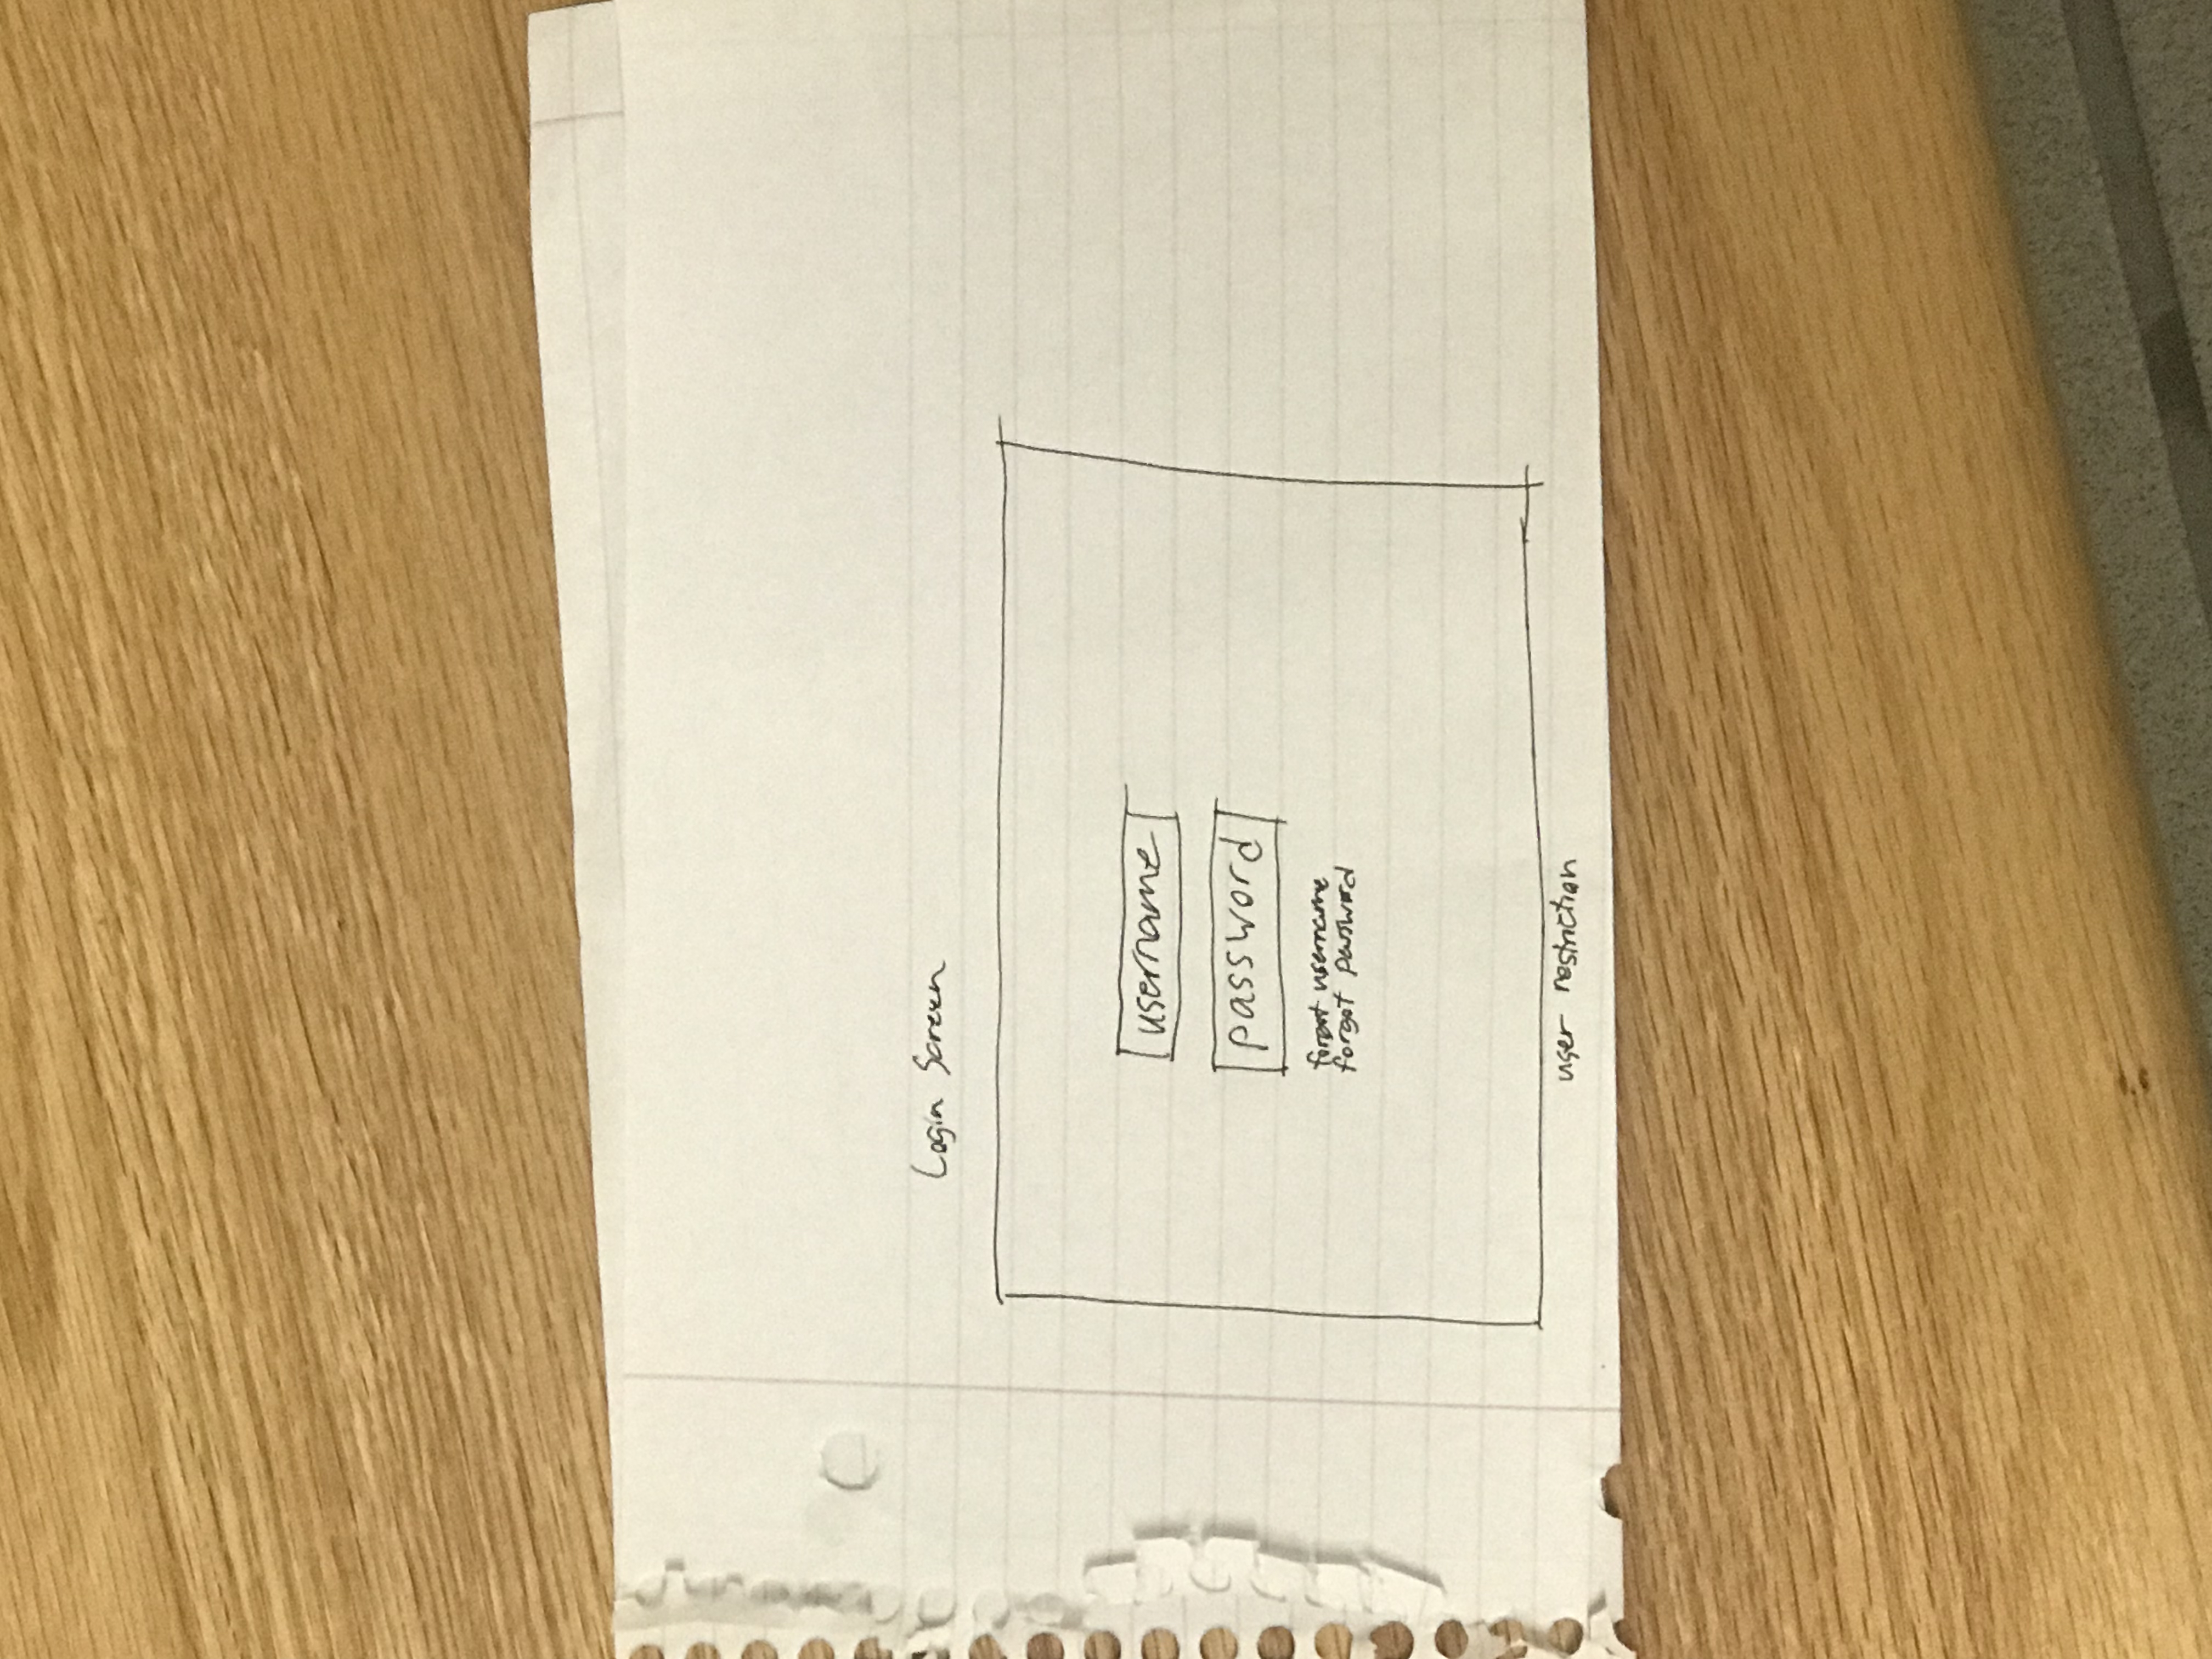 Login Screen
username
password
forgot username
forgot password
user restriction